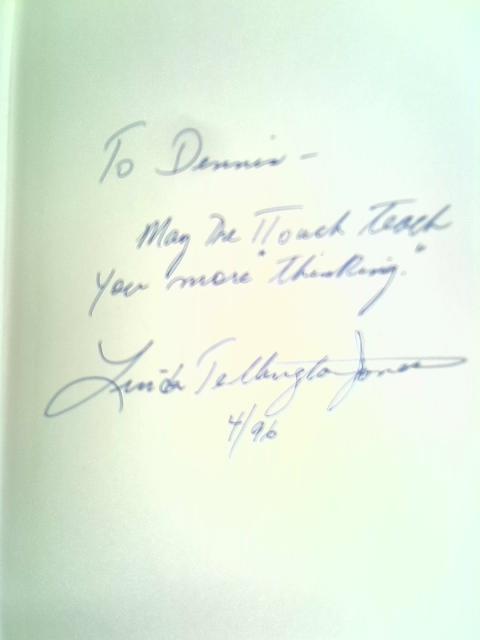 To Dennis –
May the TTouch teach
you more "thinking."
Linda Tellington Jones
4/96